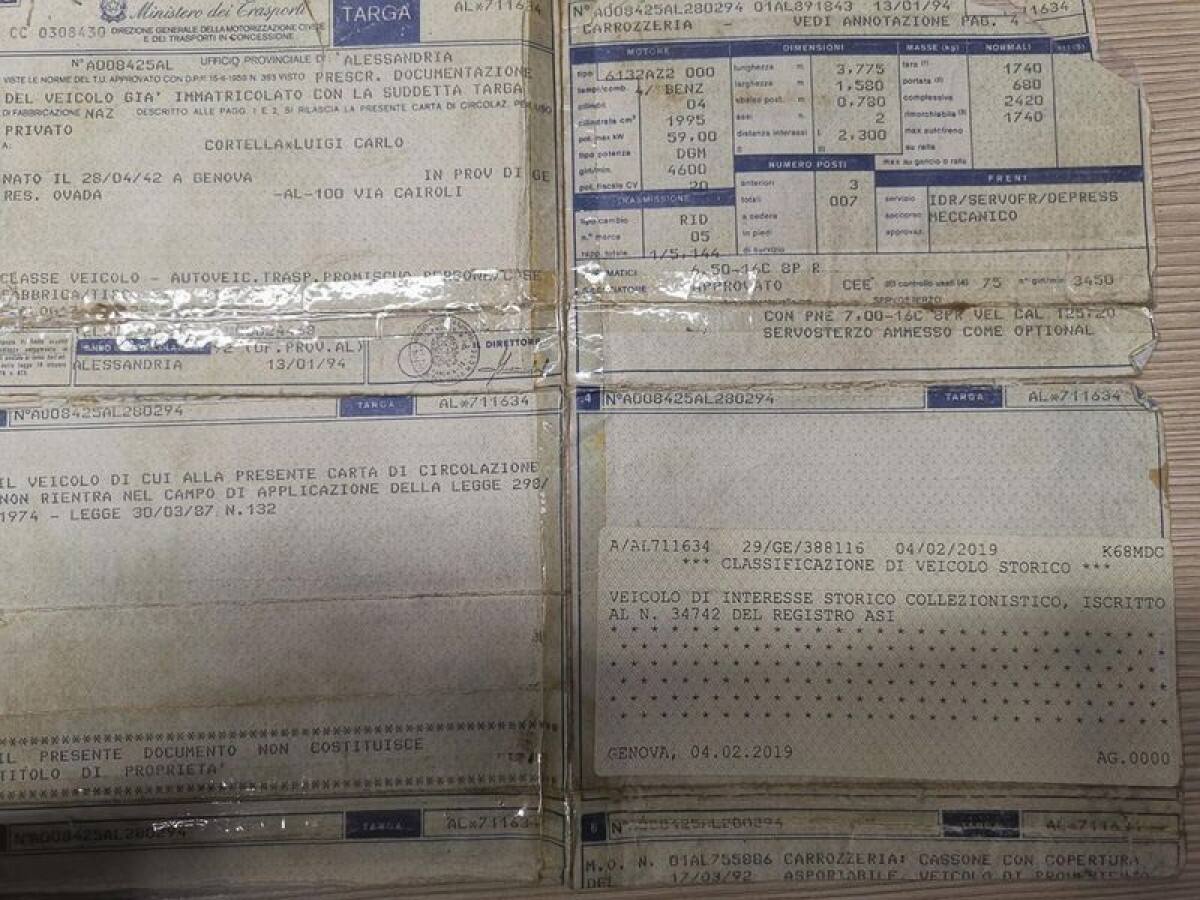 Ministero dei Trasporti
TARGA
AL*711634
CC 0308430 DIREZIONE GENERALE DELLA MOTORIZZAZIONE CIVILE
E DEI TRASPORTI IN CONCESSIONE
N°A008425AL UFFICIO PROVINCIALE DI ALESSANDRIA
VISTE LE NORME DEL T.U. APPROVATO CON D.P.R. 15-6-1959 N. 393 VISTO PRESCR. DOCUMENTAZIONE
DEL VEICOLO GIA' IMMATRICOLATO CON LA SUDDETTA TARGA
DI FABBRICAZIONE NAZ DESCRITTO ALLE PAGG. 1 E 2, SI RILASCIA LA PRESENTE CARTA DI CIRCOLAZ. PER USO
PRIVATO
A: CORTELLA*LUIGI CARLO
NATO IL 28/04/42 A GENOVA IN PROV DI GE
RES. OVADA -AL-100 VIA CAIROLI
CLASSE VEICOLO - AUTOVEIC.TRASP.PROMISCUO PERSONE/COSE
FABBRICA/TIPO
(UF.PROV.AL)
IL DIRETTORE
ALESSANDRIA 13/01/94
N°A008425AL280294 01AL891843 13/01/94
CARROZZERIA - VEDI ANNOTAZIONE PAG. 4
MOTORE
tipo 6132AZ2 000
tempi/comb. 4/ BENZ
cilindri 04
cilindrata cm³ 1995
pot. max kW 59,00
tipo potenza DGM
giri/min. 4600
pot. fiscale CV 20
TRASMISSIONE
tipo cambio RID
n.° marce 05
rapp. totale 1/5,144
DIMENSIONI
lunghezza m 3,775
larghezza m 1,580
sbalzo post. m 0,780
assi n. 2
distanza interassi 2,300
NUMERO POSTI
anteriori 3
totali 007
a sedere
in piedi
di servizio
MASSE (kg) NORMALI
tara 1740
portata 680
complessiva 2420
rimorchiabile 1740
max autotreno
su ralla
max su gancio o ralla
FRENI
servizio IDR/SERVOFR/DEPRESS
soccorso MECCANICO
approvaz.
6.50-16C 8P R
APPROVATO CEE di controllo 75 n° giri/min 3450
SERVOSTERZO
CON PNE 7.00-16C 8PR VEL CAL 125,20
SERVOSTERZO AMMESSO COME OPTIONAL
N°A008425AL280294 TARGA AL*711634
IL VEICOLO DI CUI ALLA PRESENTE CARTA DI CIRCOLAZIONE
NON RIENTRA NEL CAMPO DI APPLICAZIONE DELLA LEGGE 298/
1974 - LEGGE 30/03/87 N.132
IL PRESENTE DOCUMENTO NON COSTITUISCE
TITOLO DI PROPRIETA'
4 N°A008425AL280294 TARGA AL*711634
A/AL711634 29/GE/388116 04/02/2019 K68MDC
*** CLASSIFICAZIONE DI VEICOLO STORICO ***
VEICOLO DI INTERESSE STORICO COLLEZIONISTICO, ISCRITTO
AL N. 34742 DEL REGISTRO ASI
GENOVA, 04.02.2019 AG.0000
N°A008425AL280294 TARGA AL*711634
6 N°A008425AL280294 AL*711634
M.O. N. 01AL755886 CARROZZERIA: CASSONE CON COPERTURA
DEL 17/03/92 ASPORTABILE, VEICOLO DI